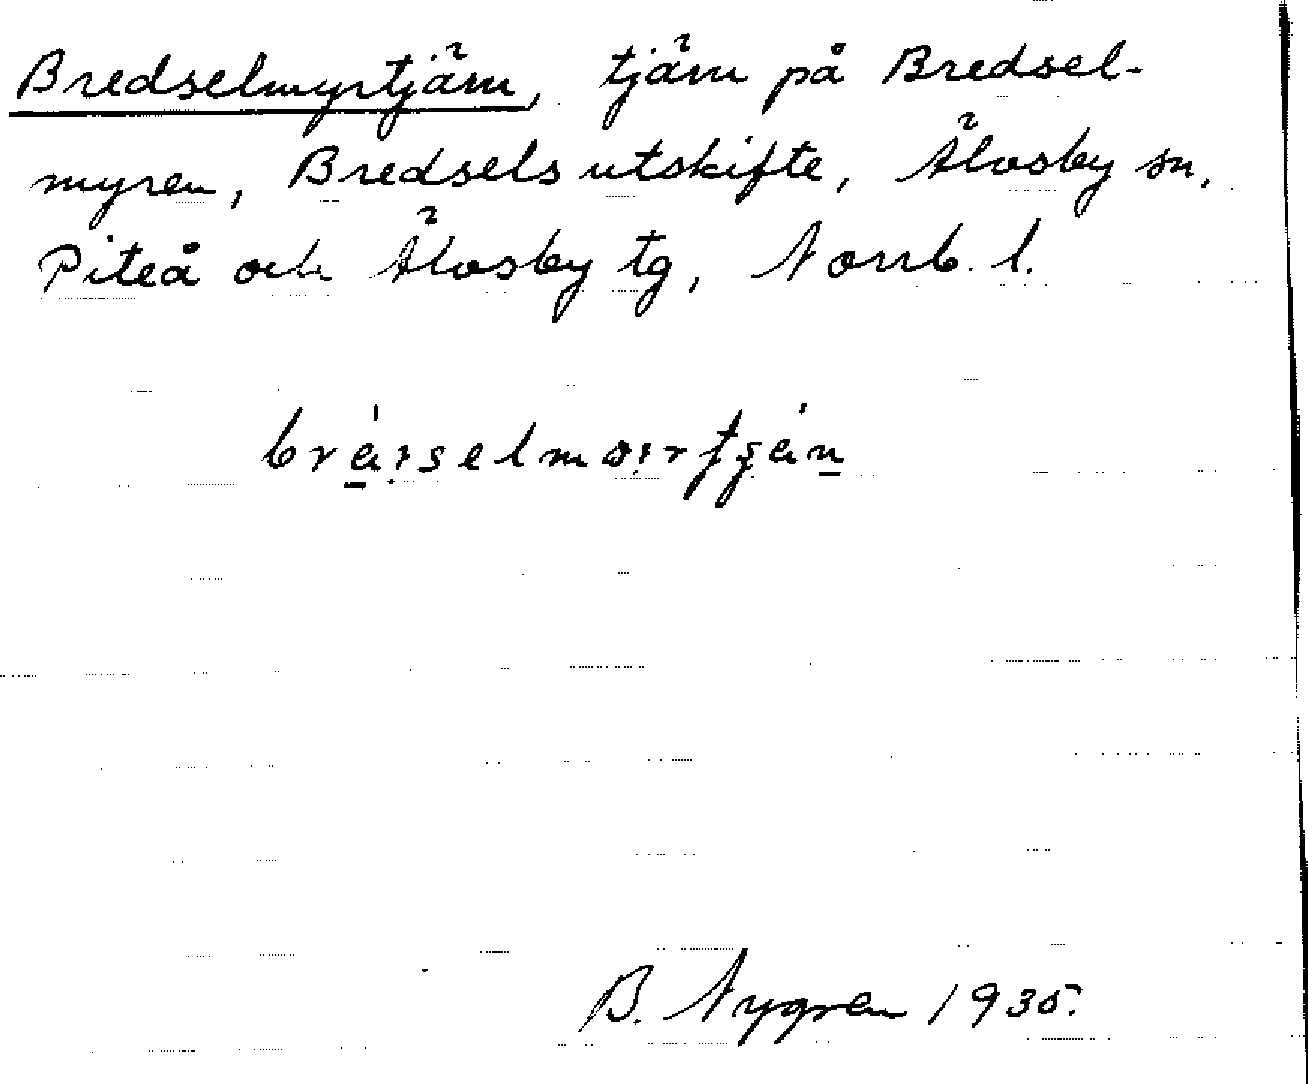 Bredselmyrtjärn, tjärn på Bredsel-
myren, Bredsels utskifte, Älvsby sn,
Piteå och Älvsby tg, Norrb. l.
B. Nygren 1935.